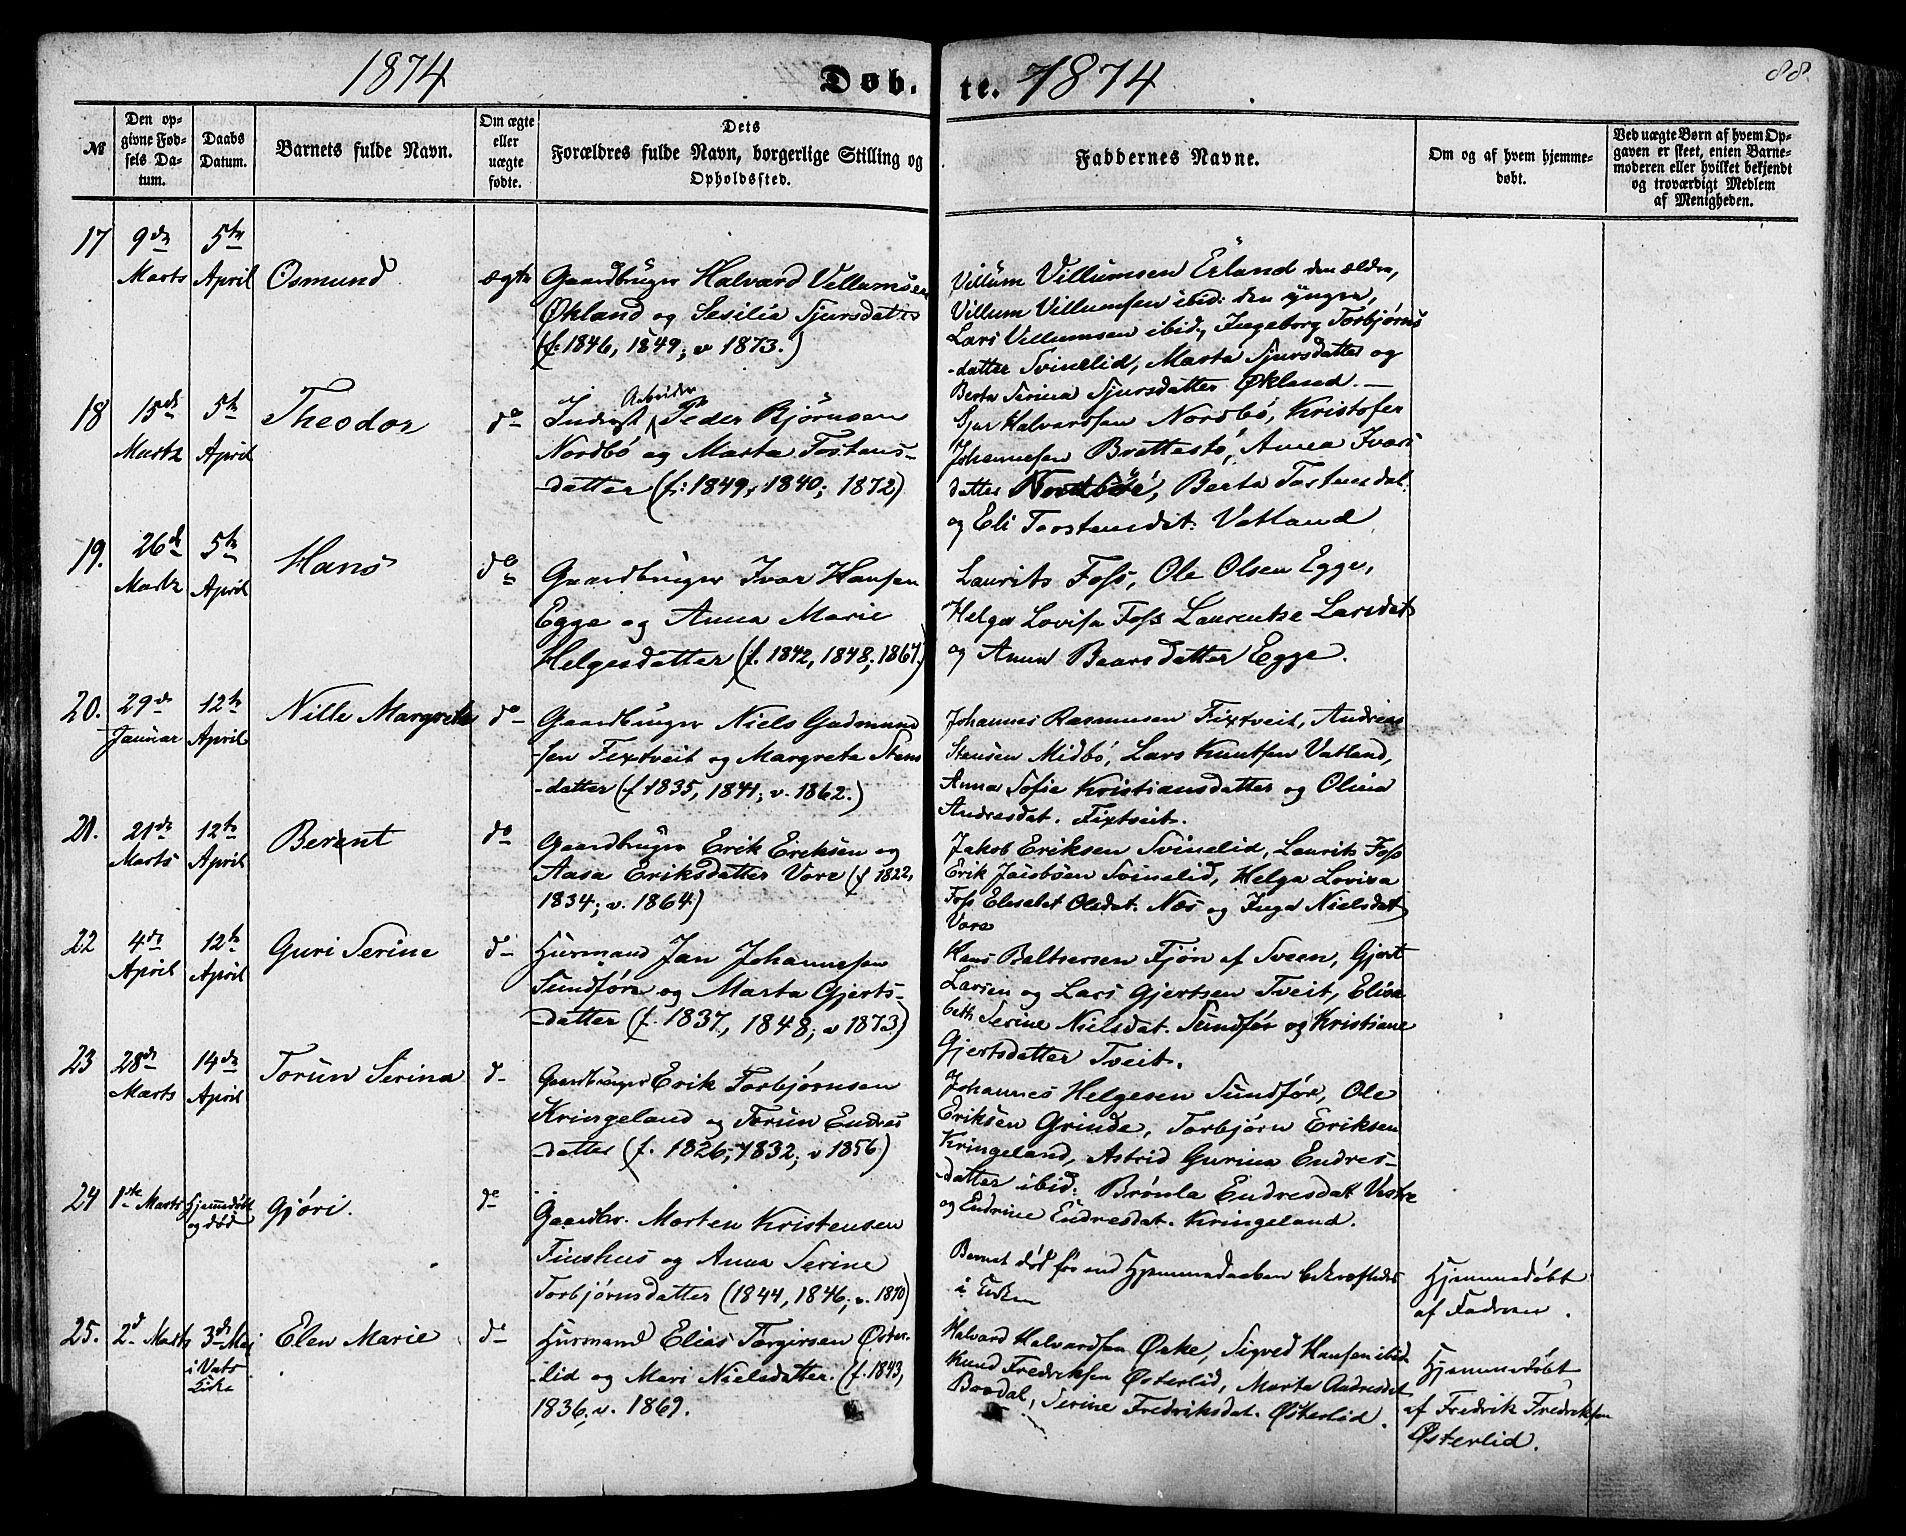 1874 Døb. te. 1874 88.
№
Den opgivne Fødsels Datum.
Daabs Datum.
Barnets fulde Navn.
Om ægte eller uægte fødte.
Dets Forældres fulde Navn, borgerlige Stilling og Opholdssted.
Faddernes Navne.
Om og af hvem hjemmedøbt.
Ved uægte Børn af hvem Opgaven er skeet, enten Barnemoderen eller hvilket bekjendt og troværdigt Medlem af Menigheden.
17 9de Marts 5te April Osmund ægte
Gaardbruger Halvard Villumsen
Økland og Sesilia Sjursdatter
(f. 1846, 1849; v 1873.)
Villum Villumsen Erland den ældre,
Villum Villumsen ibid: den yngre,
Lars Villumsen ibid, Ingeborg Torbjørns
-datter Svinelid, Marta Sjursdatter og
Berta Serina Sjursdatter Økland. —
18 15de Marts 5te April Theodor do
Inderst Arbeider Peder Bjørnsen
Nordbö og Marta Tostens-
-datter (f: 1849, 1840; 1872)
Sjur Halvardsen Nordbö, Kristofer
Johannesen Brattestö, Anna Ivars
datter Nordböe, Berta Tostensdat.
og Eli Torstensdt. Vatland
19. 26de Marts 5te April Hans do
Gaardbruger Ivar Hansen
Egge og Anna Marie
Helgesdatter (f. 1842, 1848; 1867.)
Laurits Foss, Ole Olsen Egge,
Helga Lovisa Foss Laurentse Larsdat
og Anna Baarsdatter Egge.
20. 29de Januar 12te April Nille Margrete do
Gaardbruger Niels Gudmund
-sen Fixtveit og Margreta Stens
-datter (f 1835, 1841; v. 1862.)
Johannes Rasmussen Fixtveit, Andreas
Stensen Midbö, Lars Knutsen Vatland,
Anna Sofie Kristiansdatter og Olina
Andresdat. Fixtveit.
21. 21de Marts 12te April Berent do
Gaardbruger Erik Eriksen og
Aasa Eriksdatter Vore (f 1822,
1834; v. 1864)
Jakob Eriksen Svinelid, Laurits Foss
Erik Jacobsen Svinelid, Helga Lovisa
Foss Elesabet Olsdat. Næs og Inga Nielsdat
Vore
22 4de April 12te April Guri Serine do
Husmand Jan Johannesen
Sundför og Marta Gjerts-
datter (f. 1837, 1848; v 1873)
Hans Baltsersen Fjøn af Sveen, Gjert
Larsen og Lars Gjertsen Tveit, Elisa
beth Serine Nielsdat. Sundför og Kristiane
Gjertsdatter Tveit.
23 28de Marts 14de April Torun Serina do
Gaardbruger Erik Torbjørnsen
Kringeland og Torun Endres
datter (f. 1826, 1832; v 1856)
Johannes Helgesen Sundför, Ole
Eriksen Grinde, Torbjörn Eriksen
Kringeland, Astrid Gurina Endres-
-datter ibid: Brönla Endresdat Vestre
og Endrine Endresdat. Kringeland.
24 1ste Marts Hjemmedøbt og død Gjøri. do
Gaardbr. Morten Kristensen
Finshus og Anna Serine
Torbjørnsdatter (1844, 1846; v. 1870)
Barnet död för end Hjemmedaaben bekræftedes
i Kirken
Hjemmedøbt
af Faderen.
25. 2d Marts 3de Mai i Vats Kirke Elen Marie do
Husmand Elias Torgersen Øster-
-lid og Mari Nielsdatter. (f. 1843,
1836; v. 1869.
Halvard Halvardsen Øvke, Sigved Hansen ibid
Knud Fredriksen Østerlid, Marta Andresdat
Boodal, Serine Fredriksdat. Østerlid.
Hjemmedøbt
af Fredrik Fredriksen
Østerlid.